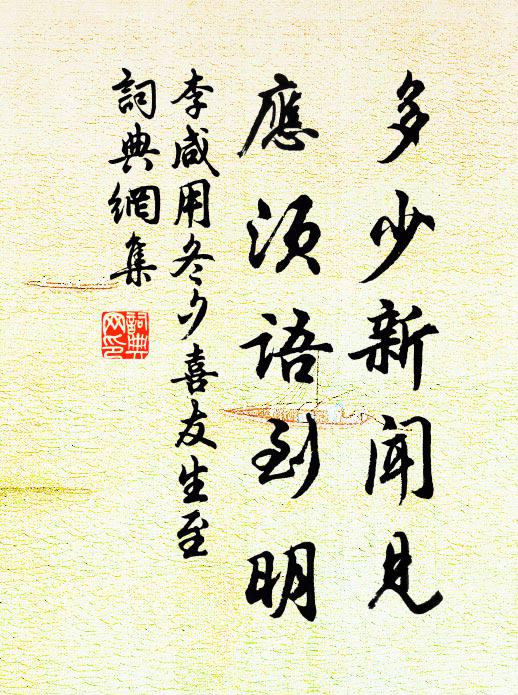 多少新聞見
應須語到明
李咸用冬夕喜友生至
詞典網集
詞典網印